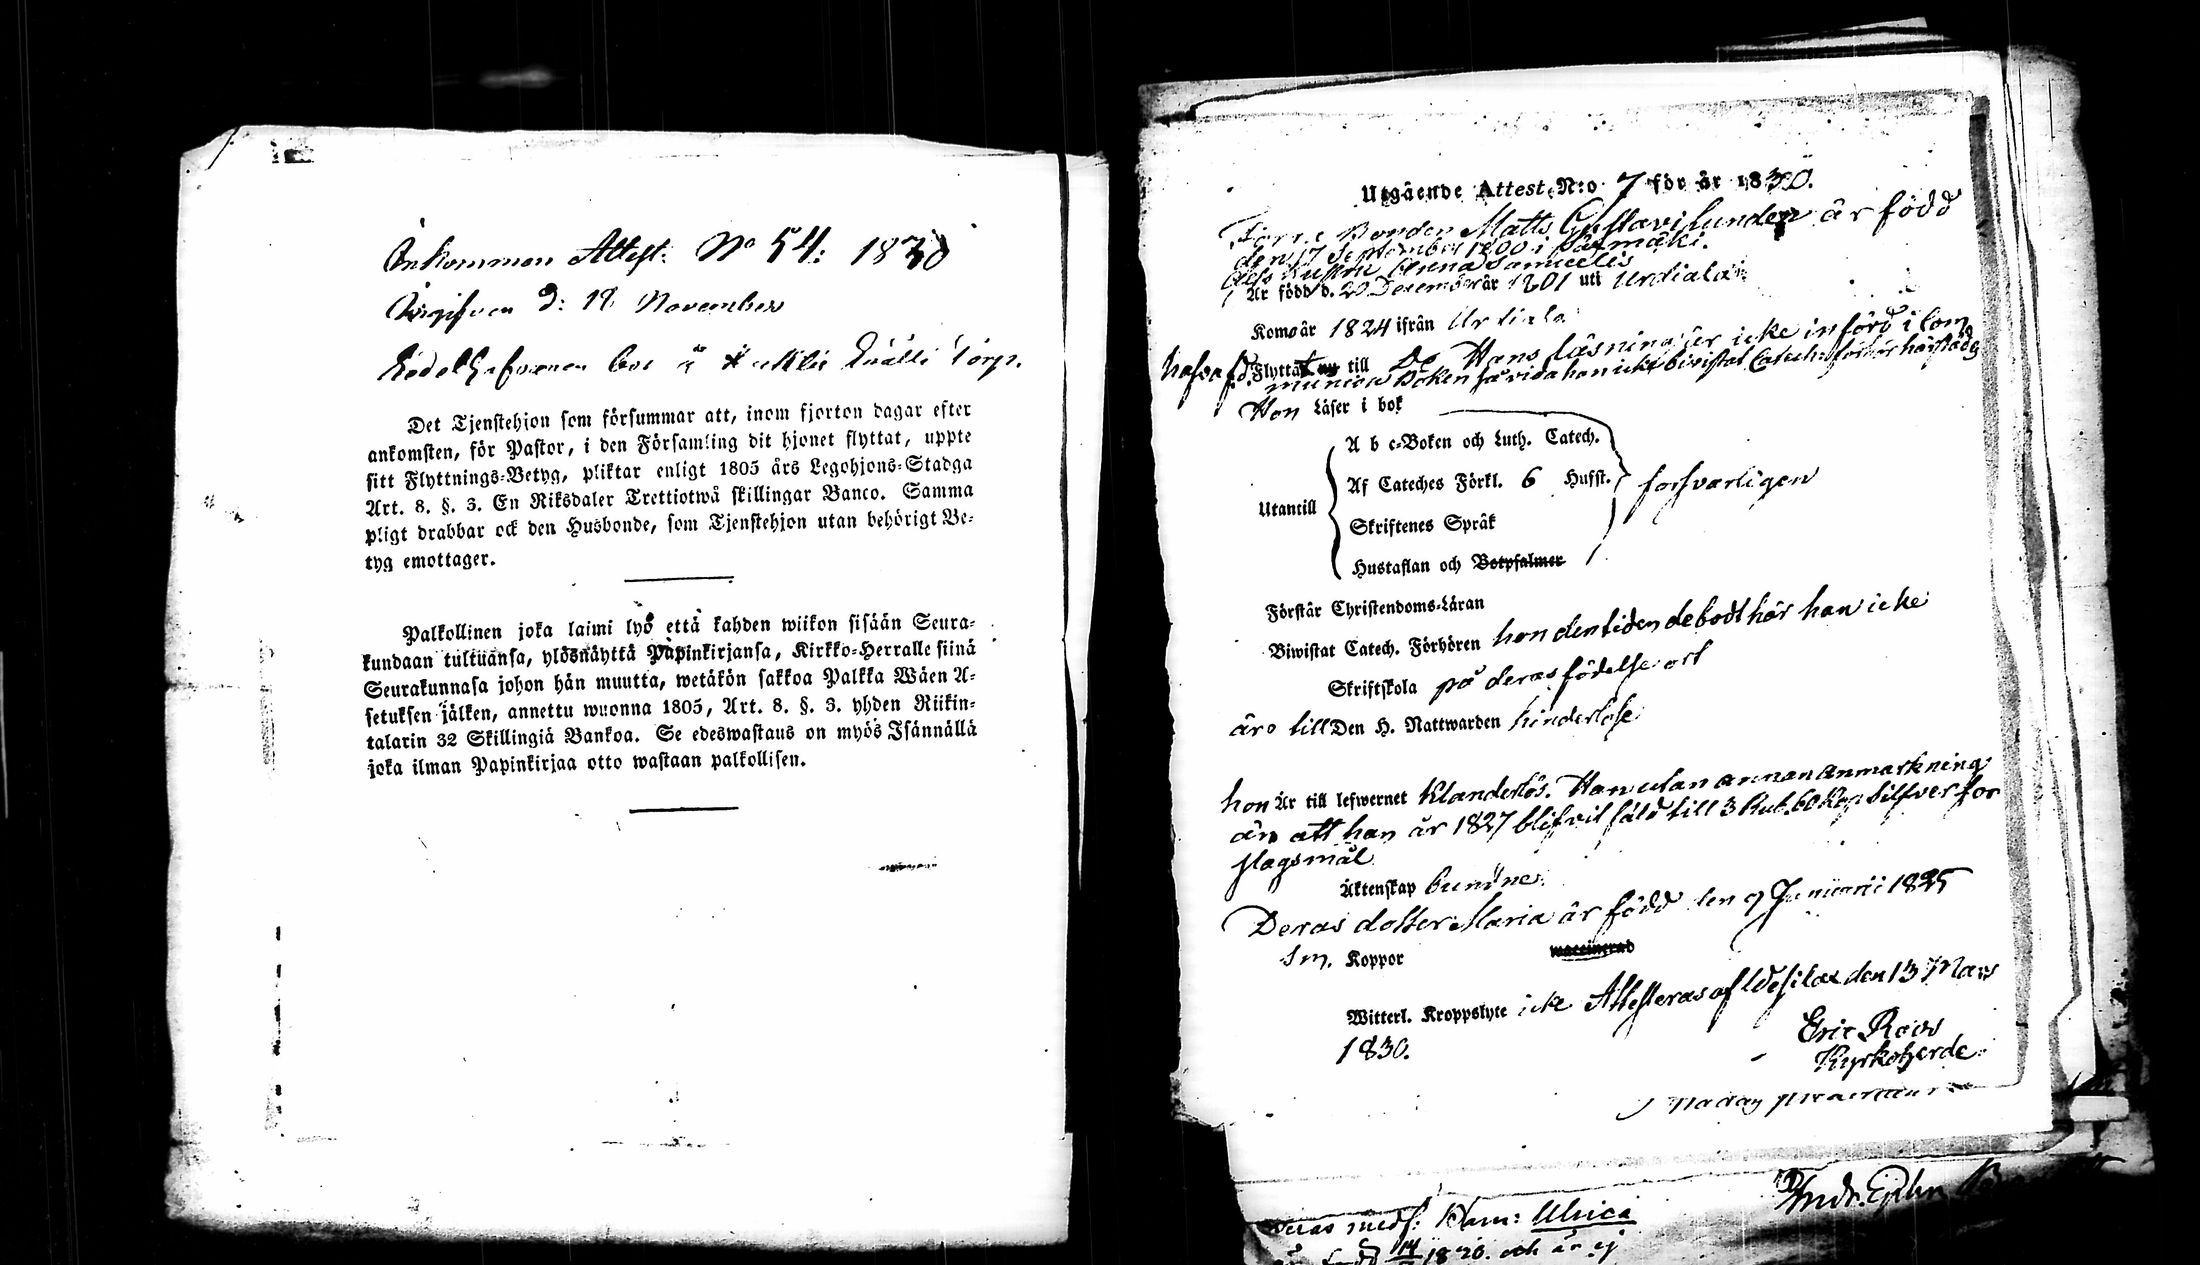 Inkommen Attest. No 54: 1830
Uigifven d: 18 November
Det Tjenstehjon som försummar att, inom fjorton dagar efter
ankomsten, för Pastor, i den Församling dit hjonet flyttat, uppte
sitt Flyttnings-Betyg, pliktar enligt 1805 års Legohjons-Stadga
Art. 8. §. 3. En Riksdaler Trettiotwå skillingar Banco. Samma
pligt drabbar ock den Husbonde, som Tjenstehjon utan behörigt Be-
tyg emottager.
Palkollinen joka laimi lyö että kahden wiikon sisään Seura-
kundaan tultuansa, ylösnäyttä Papinkirjansa, Kirkko-Herralle siinä
Seurakunnasa johon hän muutta, wetäkön sakkoa Palkka Wäen A-
setuksen jälken, annettu wuonna 1805, Art. 8. §. 3. yhden Riikin-
talarin 32 Skillingiä Bankoa. Se edeswastaus on myös Isännällä
joka ilman Papinkirjaa otto wastaan palkollisen.
Utgående Attest N:o 7 för år 1830.
Förre Bonden Matts Gustavi Lunden är född
den 17 September 1800 i Säxmäki.
dess Hustru Anna Samuelis
Är född d. 20 December år 1801 uti Urdiala
Kom år 1824 ifrån Urdiala
hafva fd. Flytta till Do Hans läsning är icke införd i Com
munion Boken så vida han icke biwistat Catech: förhör härstädes
Hon Läser i bok
A b c-Boken och Luth. Catech.
Af Cateches Förkl. 6 Hufst. forsvarligen
Utantill
Skriftenes Språk
Hustaflan och Botpsalmer
Förstår Christendoms-Läran
Biwistat Catech. Förhören hon den tiden de bodt här han icke
Skriftskola på deras födelse ort
äro till Den H. Nattwarden hinderlöse
hon Är till lefwernet Klanderlös. Han utan annan anmärkning
än att han år 1827 blifvit fäld till 3 Rub. 60 Kop Silfver för
slagsmål
Äktenskap bundne.
Deras dotter Maria är född den 9 Januarii 1825
Koppor waccinerad
Witterl. Kroppslyte icke Attesteras af Wesilax den 13 Mars
1830.
Eric Roos
Kyrkoherde
Deras medf: Ulrica
1820. och är ej